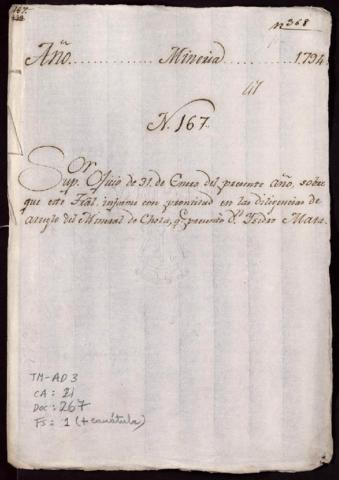 167.
nº 368
Año. Mineria 1794.
N. 167.
Sor
Sup. Oficio de 31. de Enero del presente año, sobre
que este Tral. informe con prontitud en las diligencias de
arreglo del Mineral de Chota, qe. presentó Dn. Isidro Mara.
TM-AD 3
CA: 21
DOC: 267
FS: 1 (+ carátula)